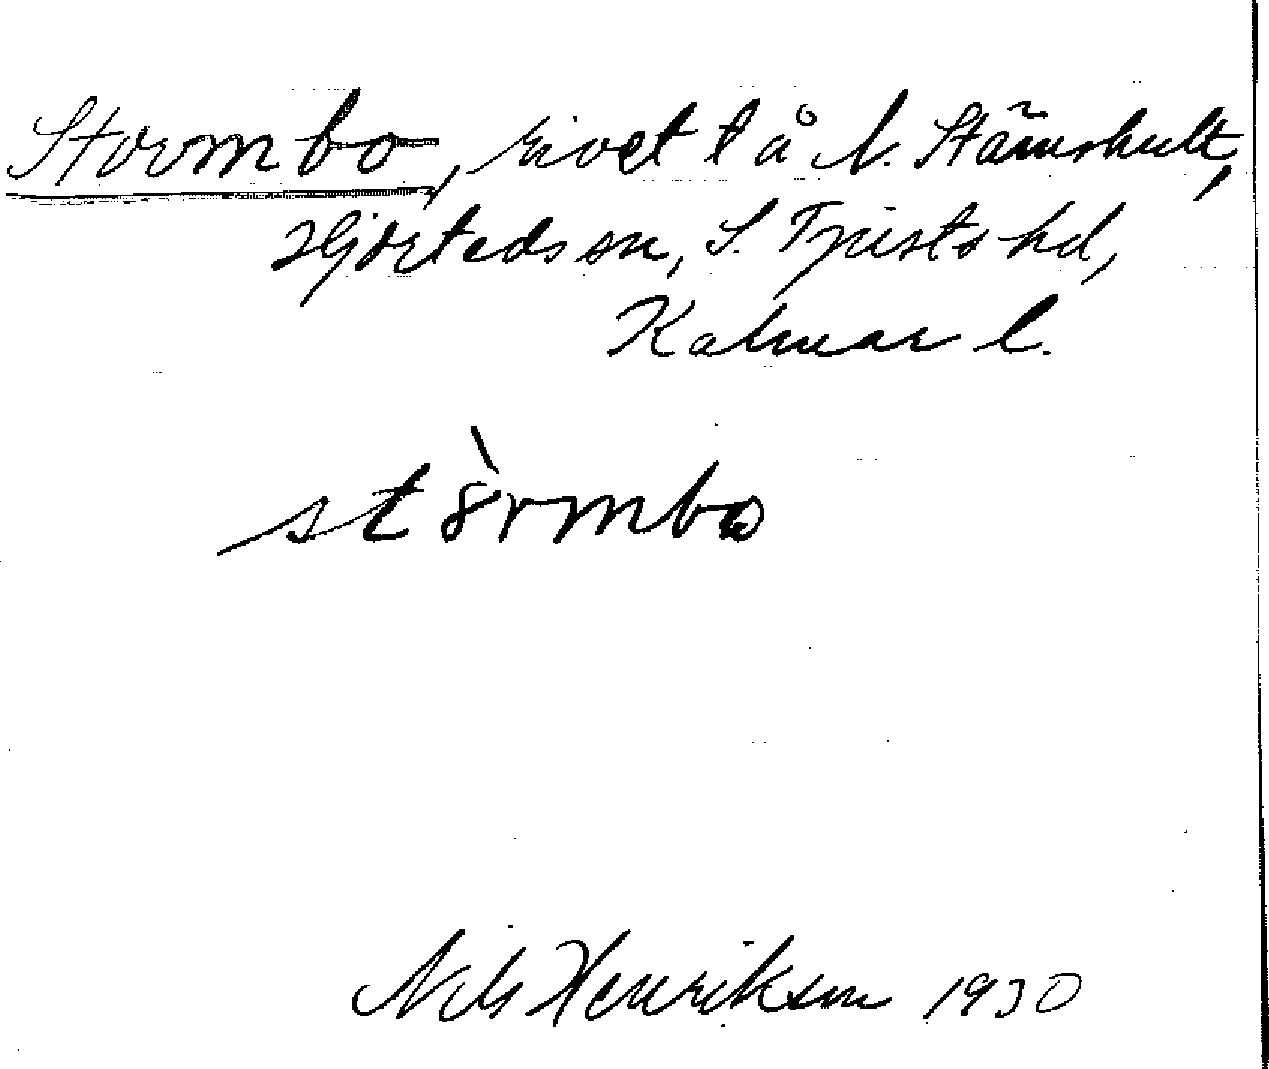 Stormbo, rivet t å N. Stämshult,
Hjorteds sn, S. Tjusts hd,
Kalmar l.
stòrmbo
Nils Henrikson 1930